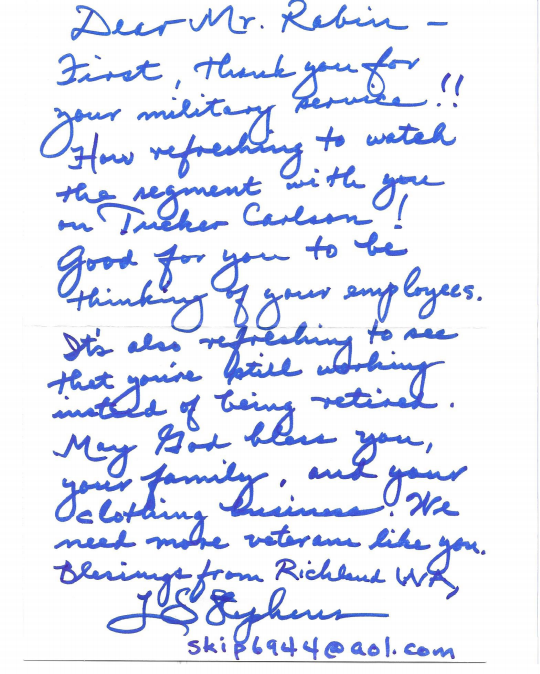 Dear Mr. Rabin -
First, thank you for
your military service!!
How refreshing to watch
the segment with you
on Tucker Carlson!
Good for you to be
thinking of your employees.
It's also refreshing to see
that you're still working
instead of being retired.
May God bless you,
your family, and your
clothing business. We
need more veterans like you.
Blessings from Richland WA,
J S Stephens
skip6944@aol.com